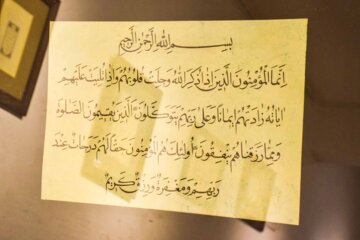 بسم الله الرحمن الرحيم
إنما المؤمنون الذين إذا ذكر الله وجلت قلوبهم وإذا تليت عليهم
آياته زادتهم إيمانا وعلى ربهم يتوكلون الذين يقيمون الصلوة
ومما رزقناهم ينفقون أولئك هم المؤمنون حقا لهم درجات عند
ربهم ومغفرة ورزق كريم